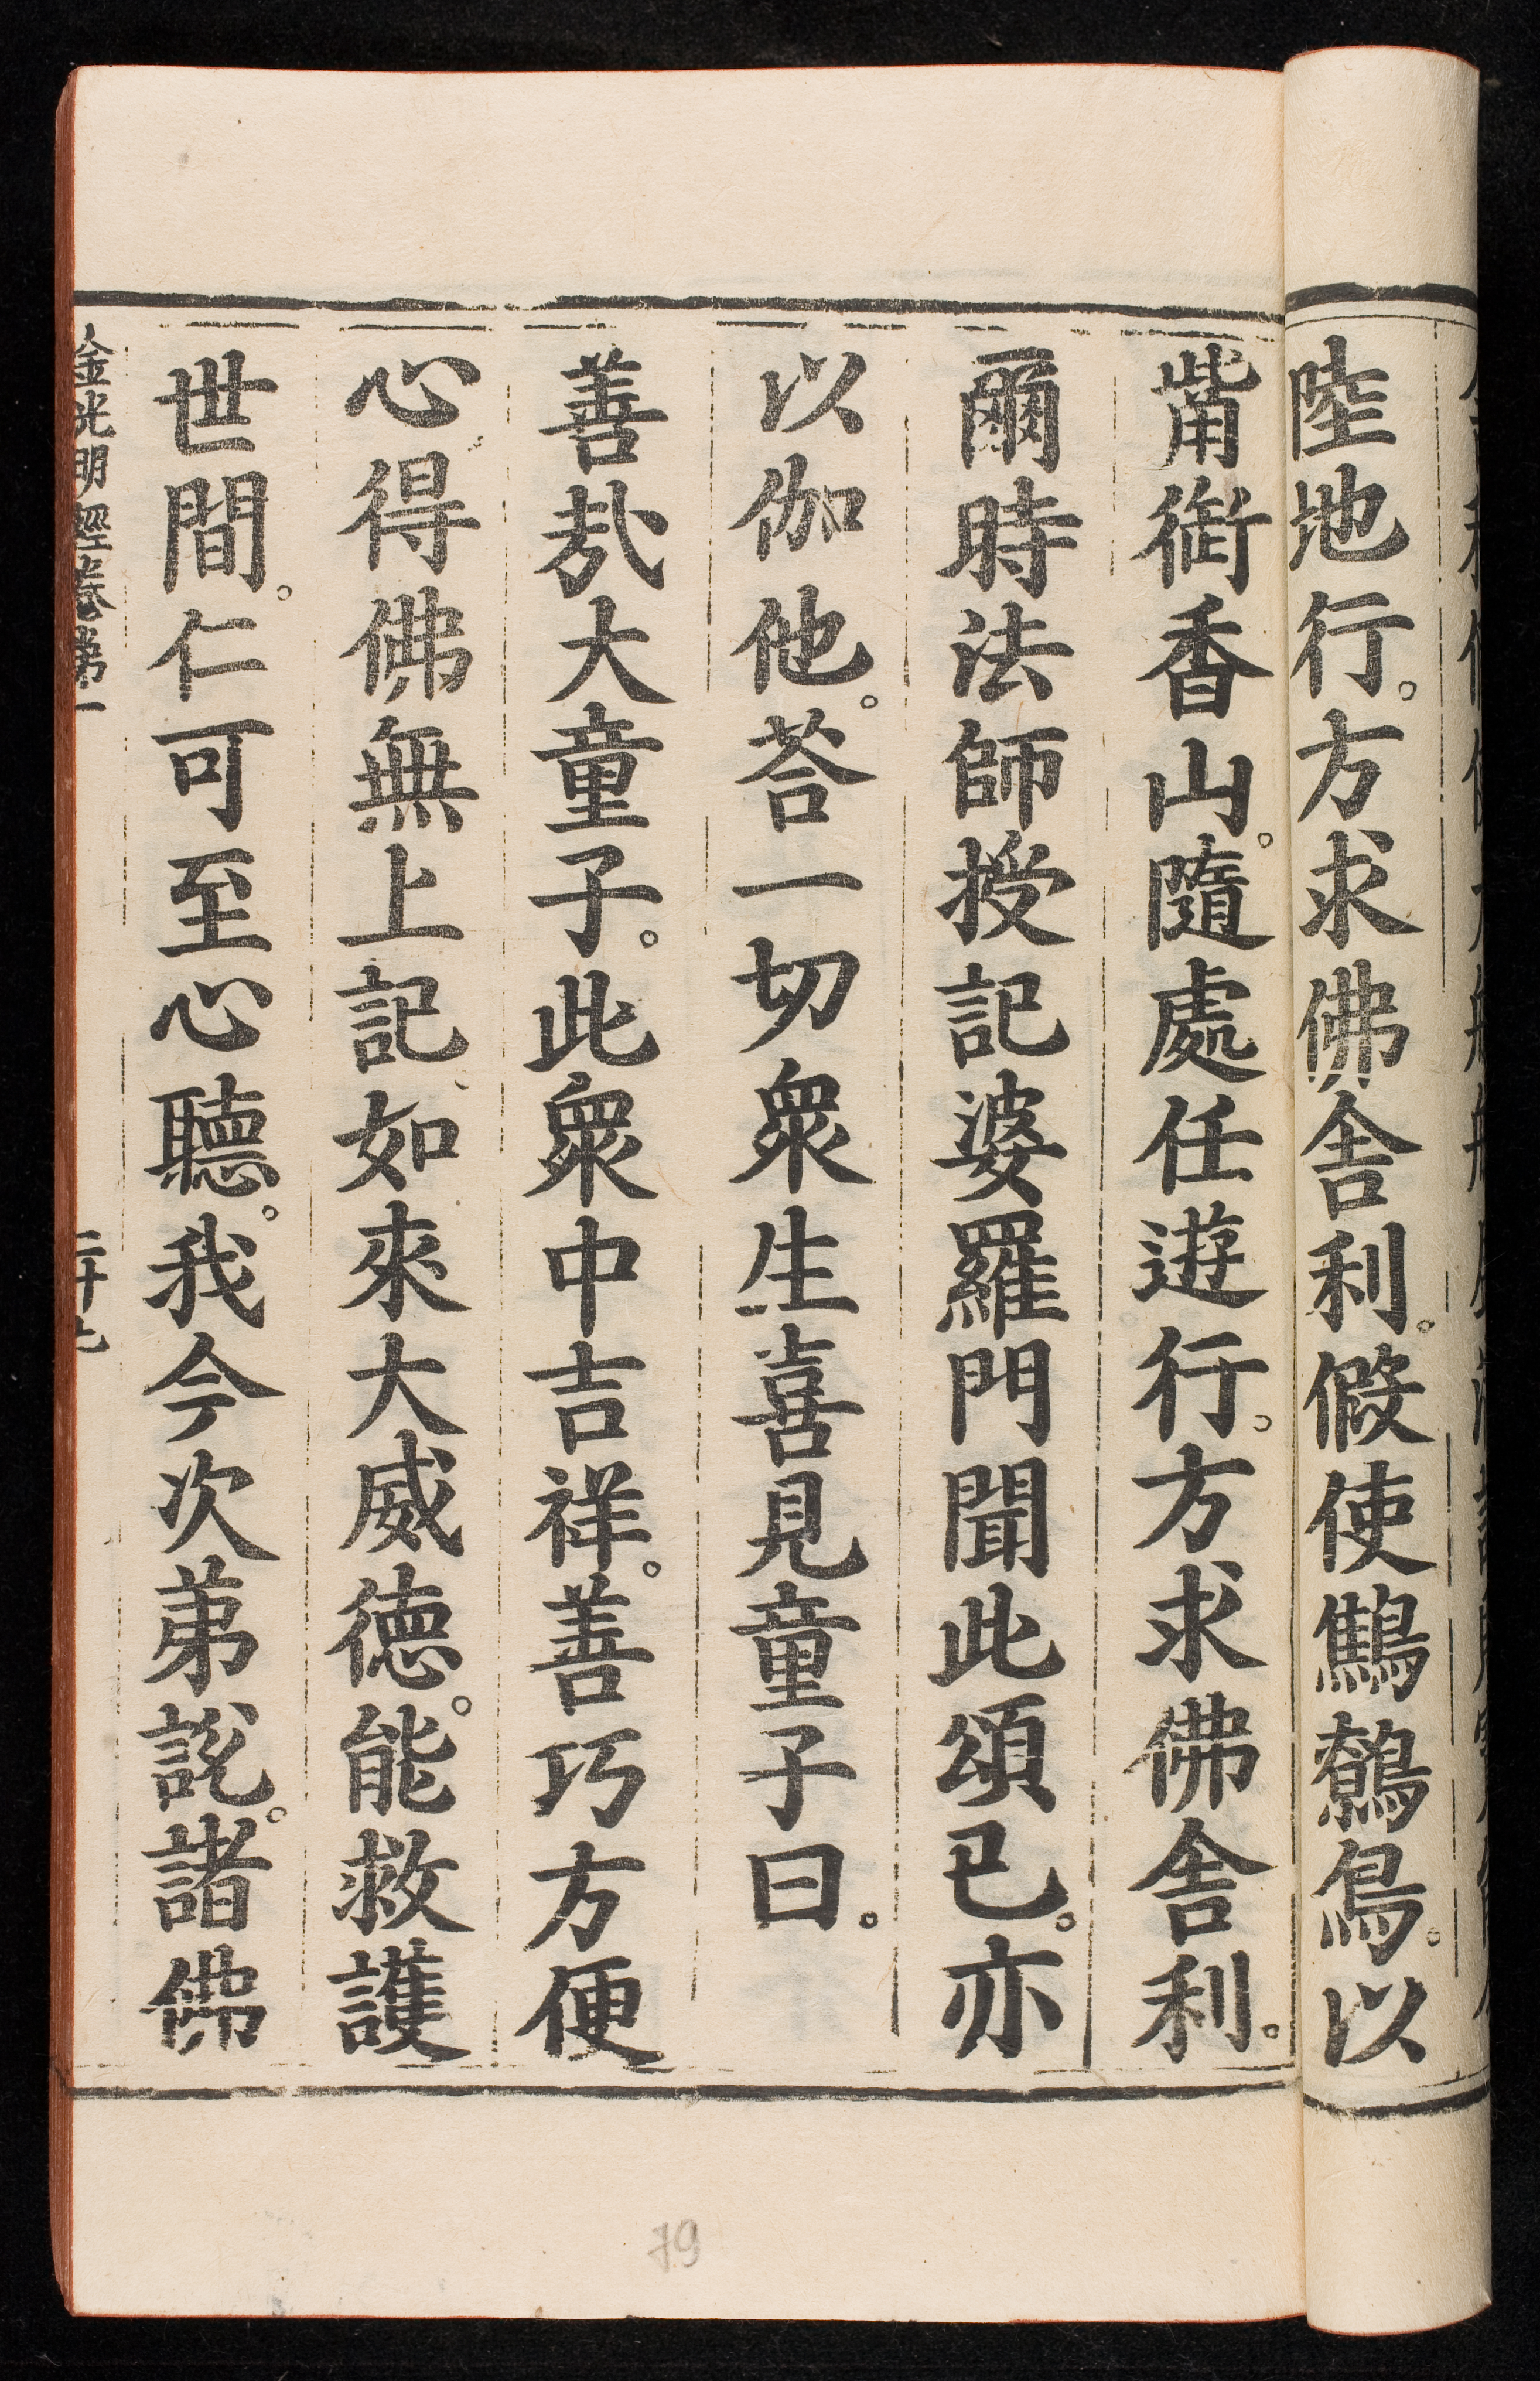 陸地行。方求佛舍利。假使鷦鷯鳥。以
觜銜香山。隨處任遊行。方求佛舍利。
爾時法師授記婆羅門聞此頌已。亦
以伽他。荅一切衆生喜見童子曰。
善哉大童子。此衆中吉祥。善巧方便
心得佛無上記如來大威德。能救護
世間。仁可至心聽。我今次第說。諸佛
金光明經卷第一
79